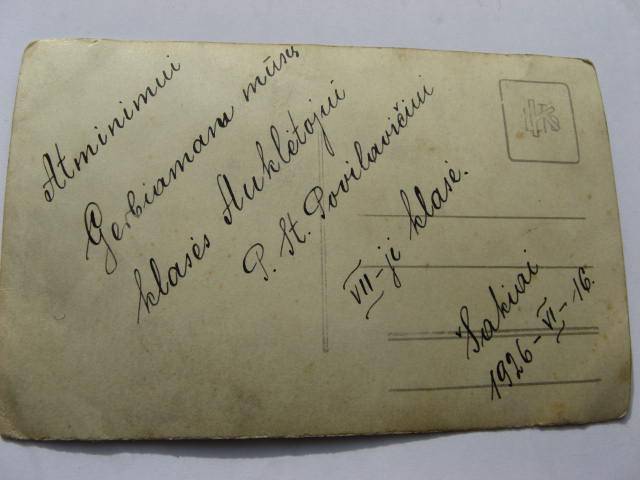 Atminimui
Gerbiamam mūsų
klasės Auklėtojui
P. St. Povilavičiui
VII-ji klasė.
Šakiai
1926-VI-16.